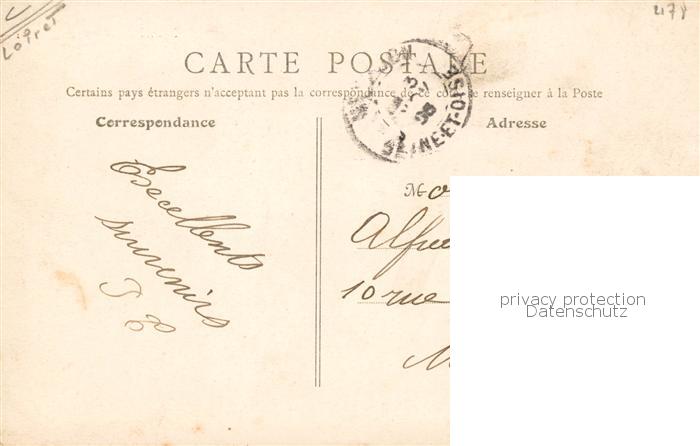 Loiret
478
CARTE POSTALE
Certains pays étrangers n'acceptant pas la correspondance de ce côté se renseigner à la Poste
Correspondance
Adresse
SEINE-ET-OISE
Excellents
souvenirs
M
Alfre
10 rue
M
privacy protection
Datenschutz